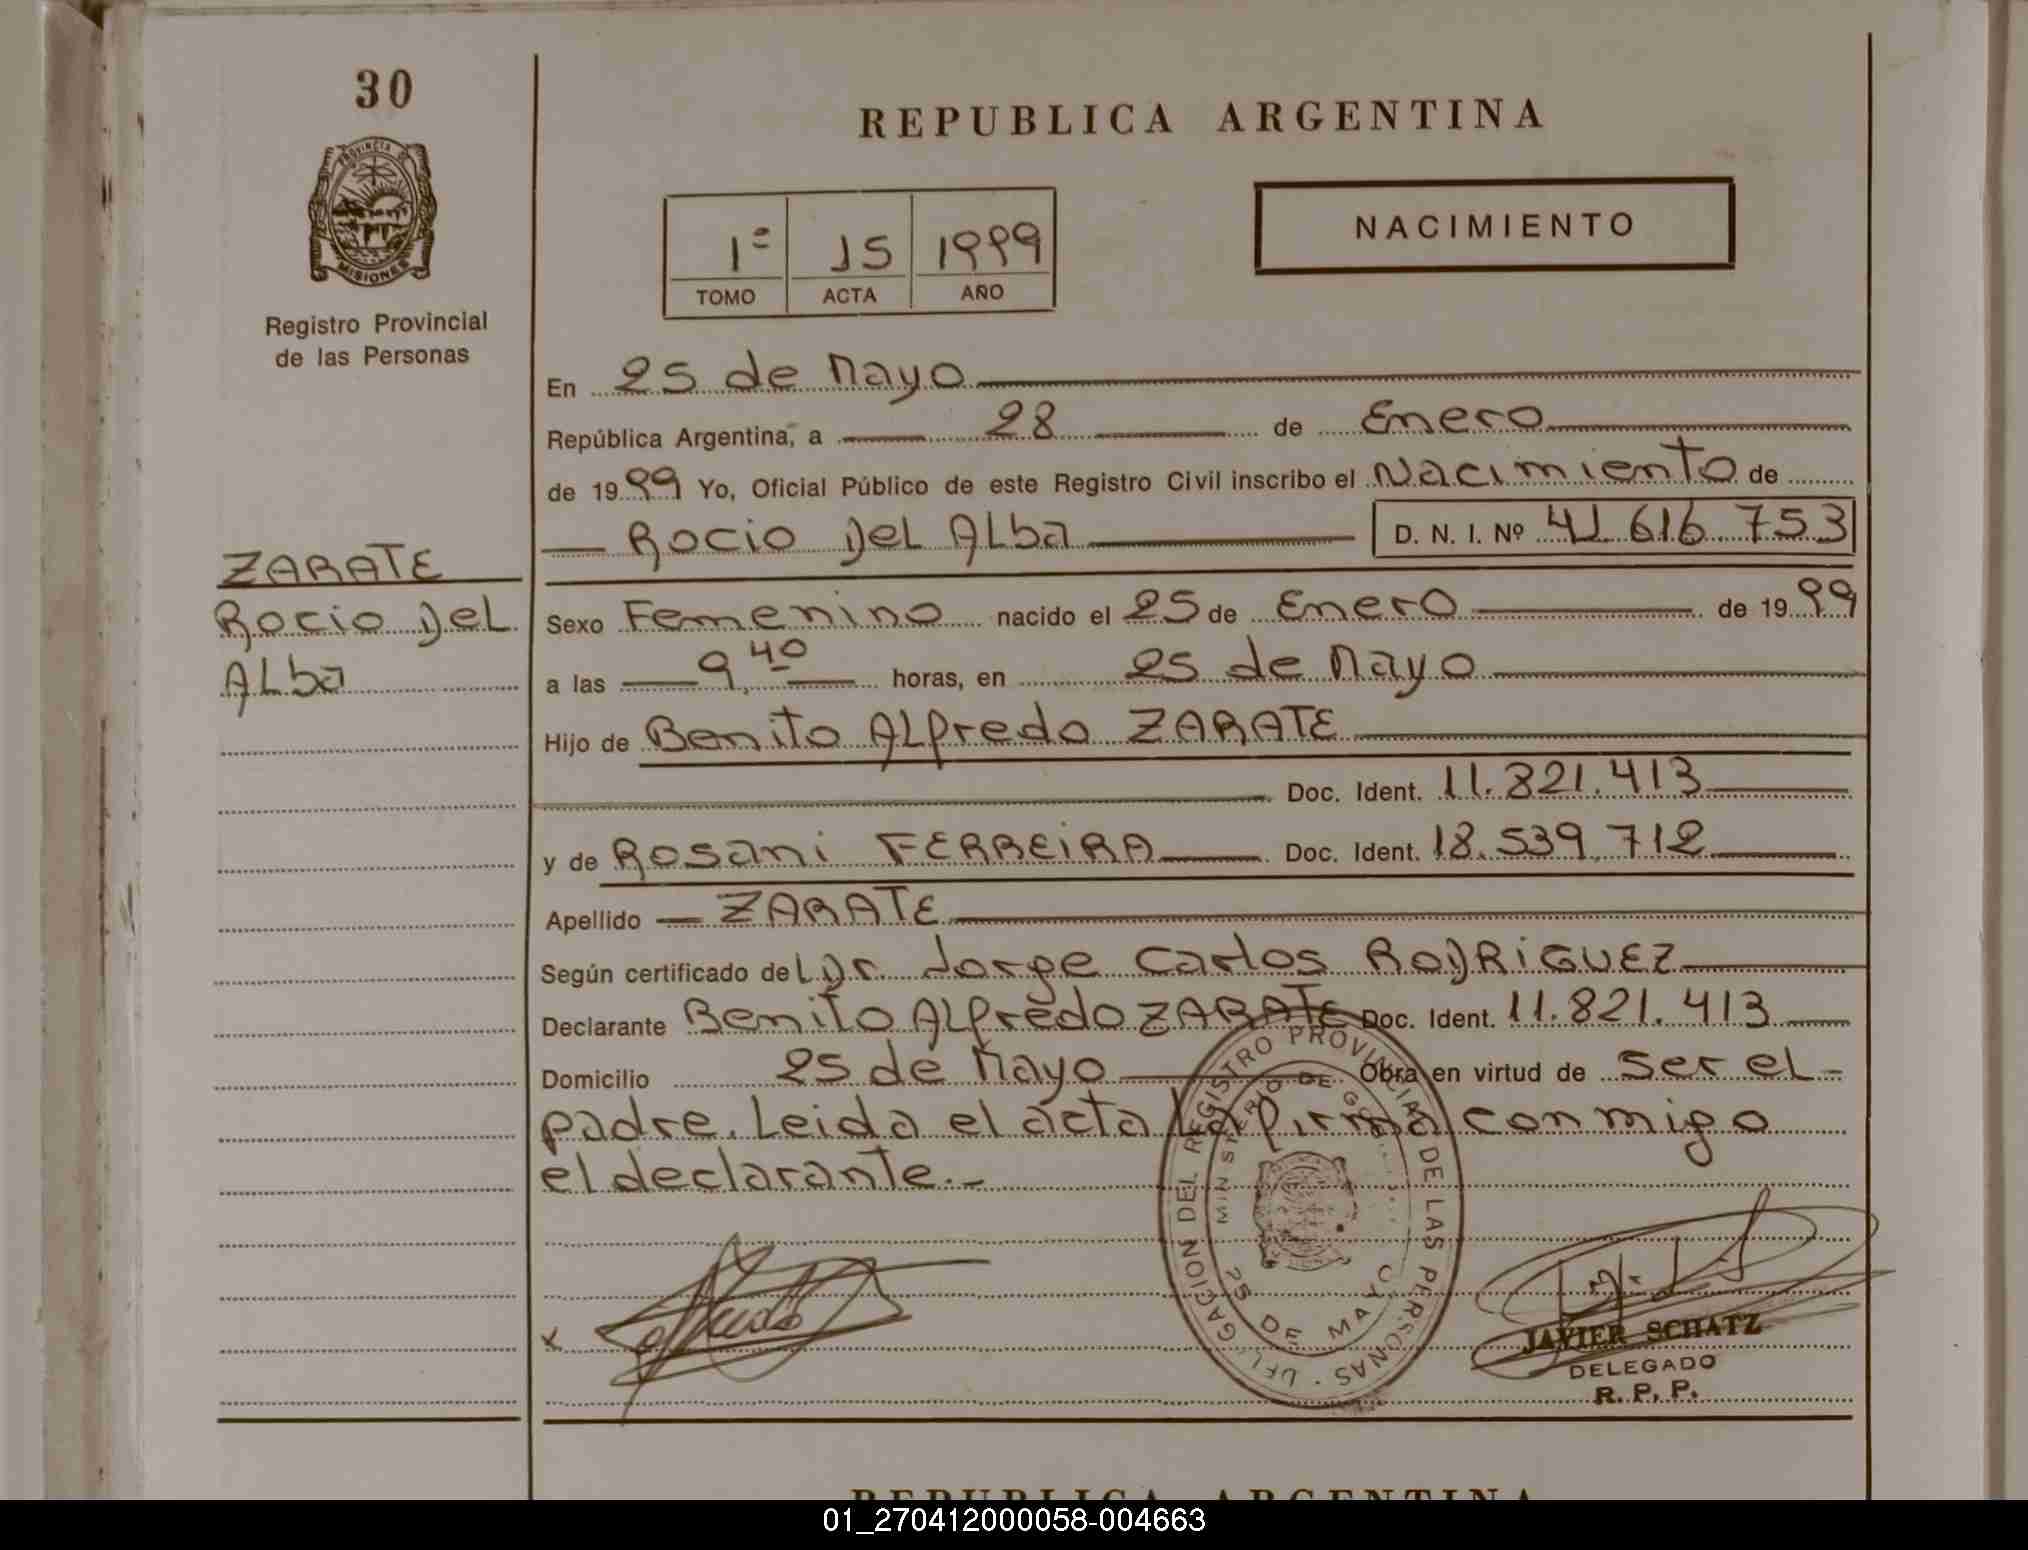 30
PROVINCIA DE
MISIONES
Registro Provincial
de las Personas
REPUBLICA ARGENTINA
1º 15 1999
TOMO ACTA AÑO
NACIMIENTO
En 25 de Mayo
República Argentina, a 28 de Enero
de 1999 Yo, Oficial Público de este Registro Civil inscribo el Nacimiento de
Rocio Del Alba D. N. I. Nº 41 616 753
ZARATE
Rocio Del
Alba
Sexo Femenino nacido el 25 de Enero de 1999
a las 9,40 horas, en 25 de Mayo
Hijo de Benito Alfredo ZARATE
Doc. Ident. 11.821.413
y de Rosani FERREIRA Doc. Ident. 18.539.712
Apellido ZARATE
Según certificado del Dr. Jorge Carlos RODRIGUEZ
Declarante Benito Alfredo ZARATE Doc. Ident. 11.821.413
Domicilio 25 de Mayo Obra en virtud de ser el-
padre. Leida el acta la firma conmigo
el declarante.-
DELEGACION DEL REGISTRO PROVINCIAL DE LAS PERSONAS
MINISTERIO DE
25 DE MAYO
x
JAVIER SCHATZ
DELEGADO
R. P. P.
REPUBLICA ARGENTINA
01_270412000058-004663